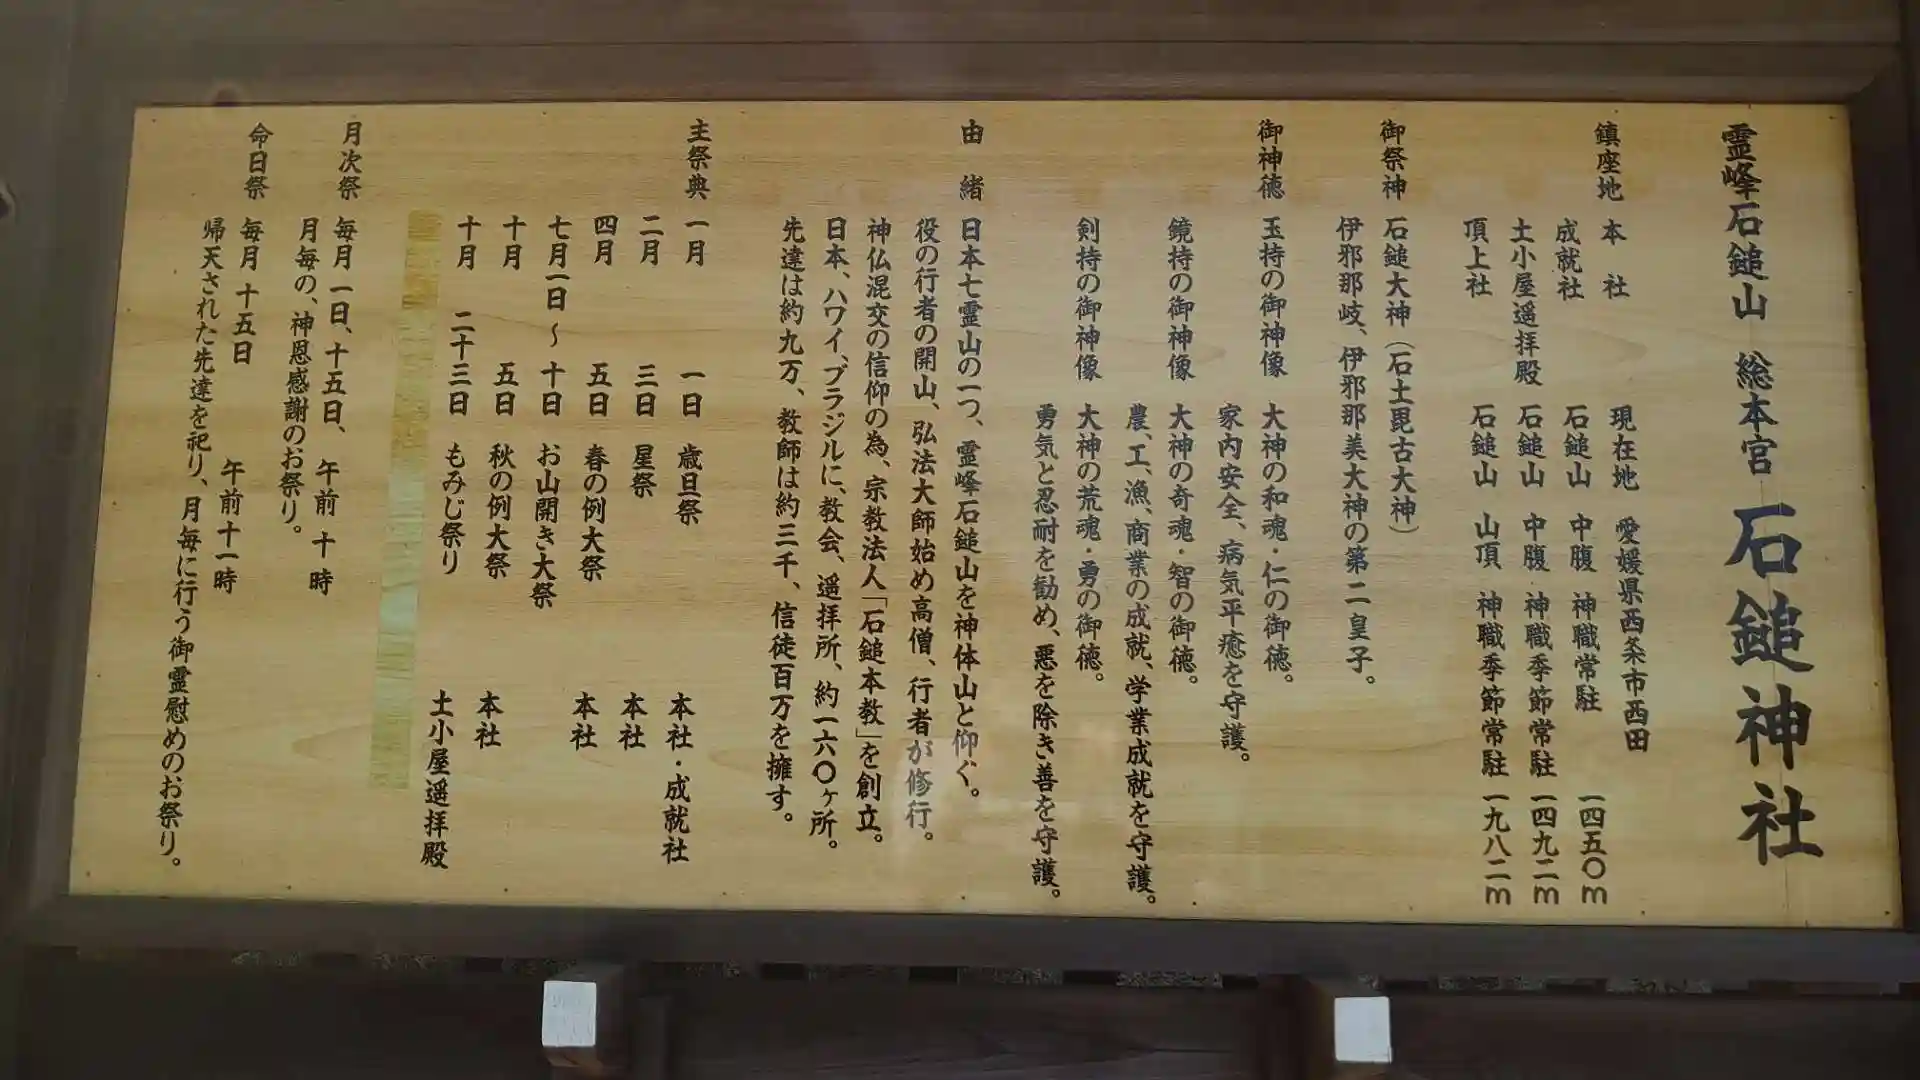 霊峰石鎚山 総本宮 石鎚神社
鎮座地 本社 現在地 愛媛県西条市西田
成就社 石鎚山 中腹 神職常駐 一四五〇m
土小屋遥拝殿 石鎚山 中腹 神職季節常駐 一四九二m
頂上社 石鎚山 山頂 神職季節常駐 一九八二m
御祭神 石鎚大神（石土毘古大神）
伊邪那岐、伊邪那美大神の第二皇子。
御神徳 玉持の御神像 大神の和魂・仁の御徳。
家内安全、病気平癒を守護。
鏡持の御神像 大神の奇魂・智の御徳。
農、工、漁、商業の成就、学業成就を守護。
剣持の御神像 大神の荒魂・勇の御徳。
勇気と忍耐を勧め、悪を除き善を守護。
由緒 日本七霊山の一つ、霊峰石鎚山を神体山と仰ぐ。
役の行者の開山、弘法大師始め高僧、行者が修行。
神仏混交の信仰の為、宗教法人「石鎚本教」を創立。
日本、ハワイ、ブラジルに、教会、遥拝所、約一六〇ヶ所。
先達は約九万、教師は約三千、信徒百万を擁す。
主祭典 一月 一日 歳旦祭 本社・成就社
二月 三日 星祭 本社
四月 五日 春の例大祭 本社
七月一日～十日 お山開き大祭
十月 五日 秋の例大祭 本社
十月 二十三日 もみじ祭り 土小屋遥拝殿
月次祭 毎月一日、十五日、午前十時
月毎の、神恩感謝のお祭り。
命日祭 毎月十五日 午前十一時
帰天された先達を祀り、月毎に行う御霊慰めのお祭り。